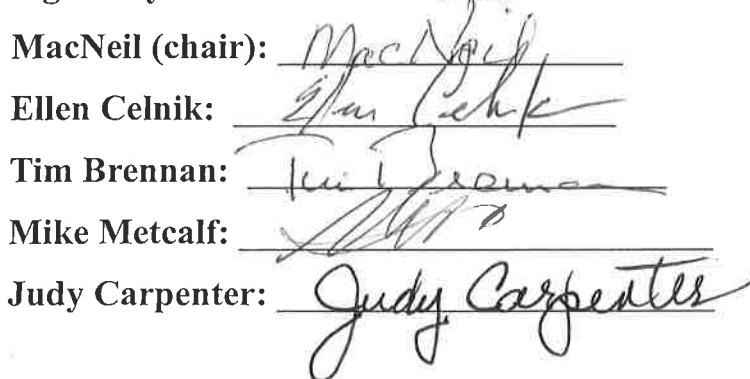 MacNeil (chair): MacNeil
Ellen Celnik: Ellen Celnik
Tim Brennan: Tim Brennan
Mike Metcalf:
Judy Carpenter: Judy Carpenter